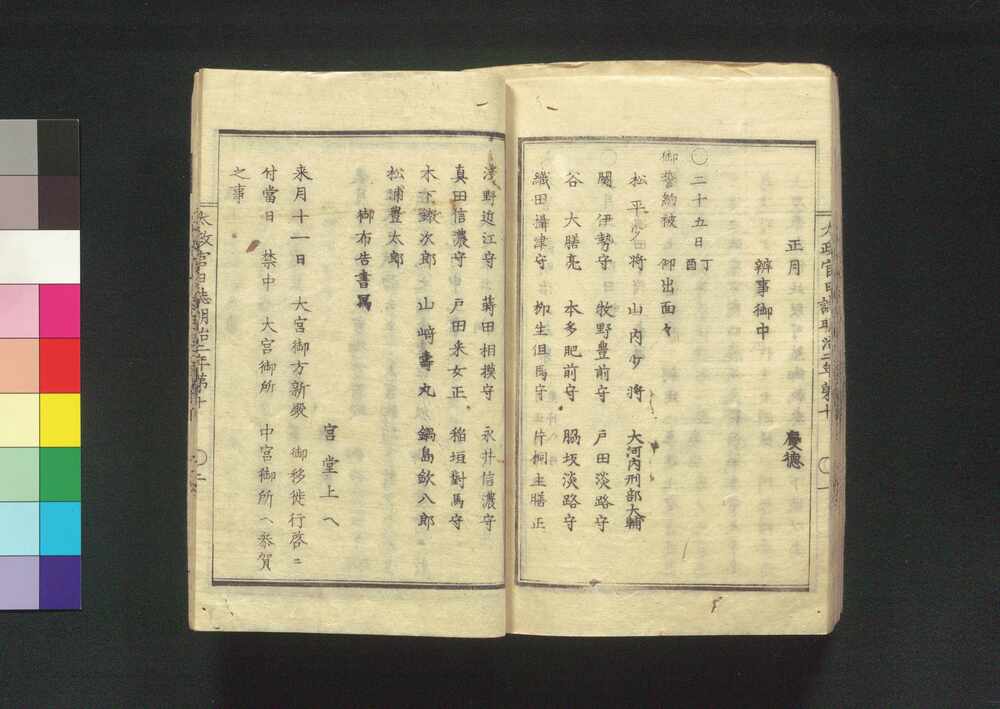 太政官日誌明治二年第十
正月　慶徳
辨事御中
〇二十五日丁酉
御誓約被　仰出面々
松平少将　山内少将　大河内刑部大輔
関伊勢守　牧野豊前守　戸田淡路守
谷大膳亮　本多肥前守　脇坂淡路守
織田攝津守　柳生但馬守　片桐主膳正
淺野近江守　蒔田相摸守　永井信濃守
真田信濃守　戸田采女正　稲垣對馬守
木下錂次郎　山﨑壽丸　鍋島欽八郎
松浦豊太郎
御布告書寫
宮堂上へ
来月十一日　大宮御方新殿　御移徙行啓ニ
付當日　禁中　大宮御所　中宮御所ヘ恭賀
之事
太政官日誌明治二年第十